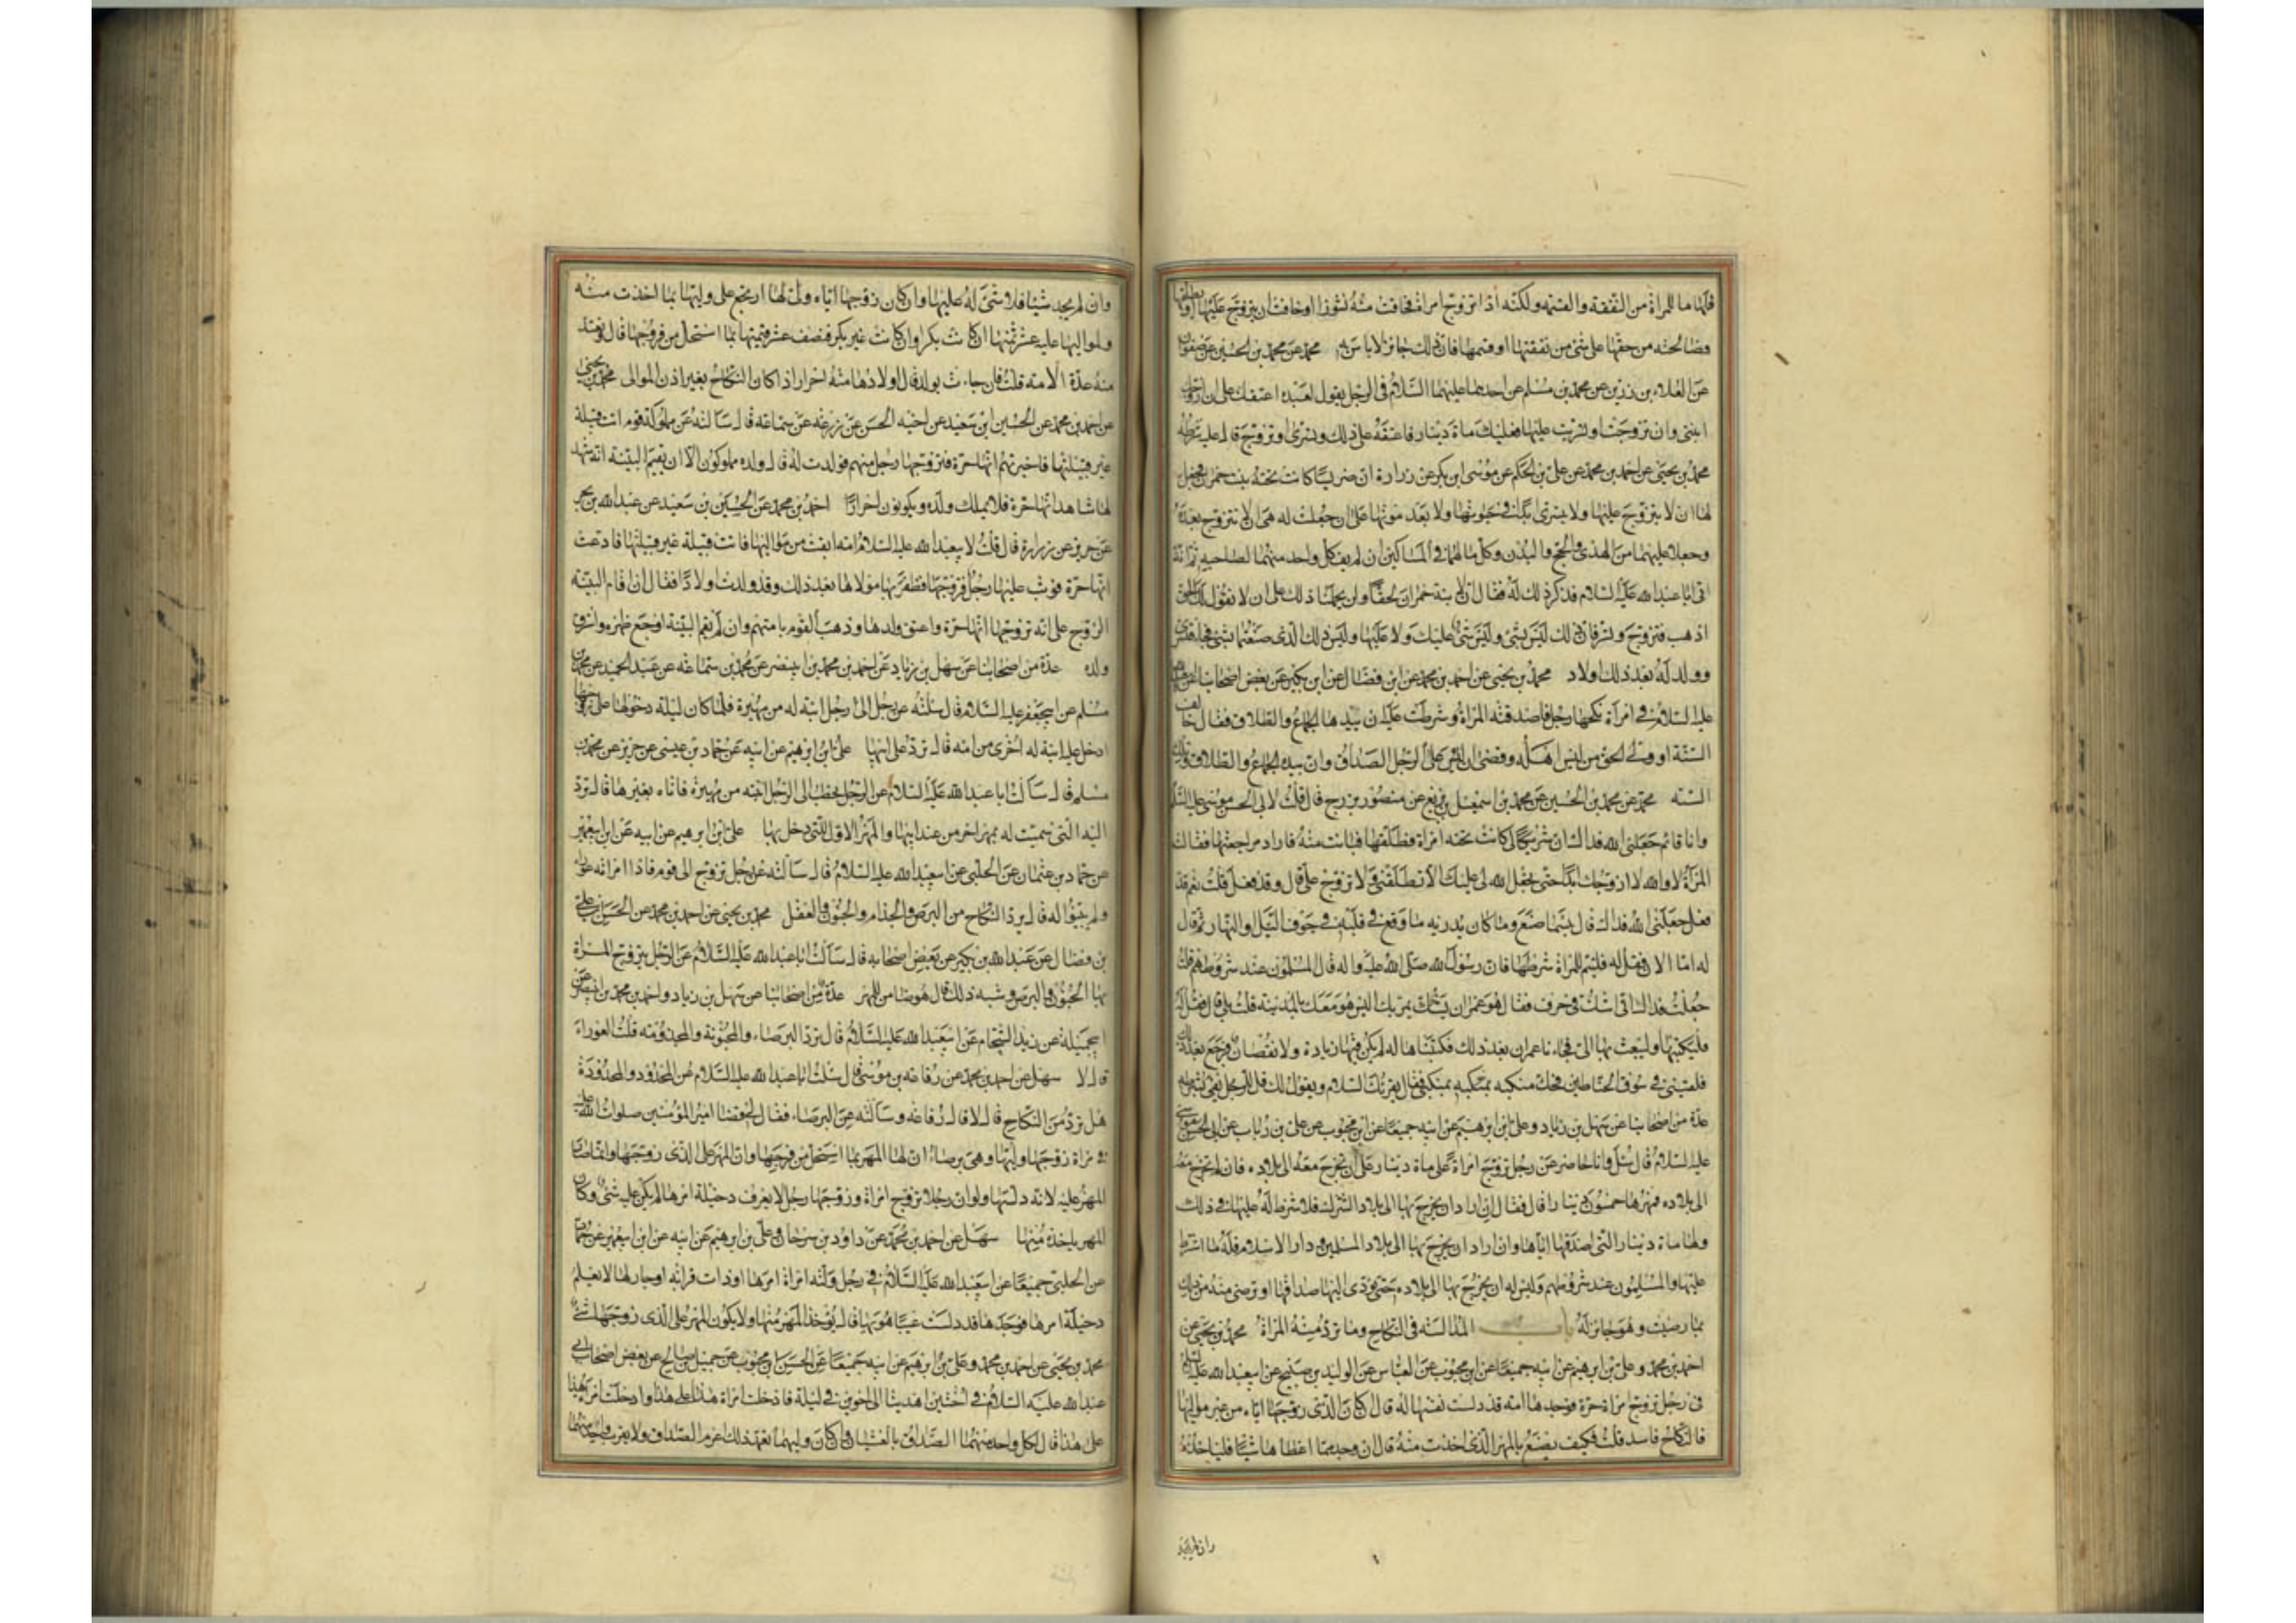 فلها ما للمراة من النفقة والقسمة ولكنه اذا تزوج امراة فخافت منه نشوزا او خافت ان يتزوج عليها او يطلقها
فصالحته من حقها على شئ من نفقتها او قسمتها فان ذلك جائز لا باس به محمد عن محمد بن الحسين عن صفوان
عن العلاء بن رزين عن محمد بن مسلم عن احدهما عليهما السلام فى الرجل يقول لعبده اعتقك على ان ازوجك
ابنتى وان تزوجت او تسريت عليها فعليك مائة دينار فاعتقه على ذلك وتسرى او تزوج قال عليه شرطه
محمد بن يحيى عن احمد بن محمد عن على بن الحكم عن موسى بن بكر عن زرارة ان ضريسا كانت تحته بنت حمران فجعل
لها ان لا يتزوج عليها ولا يتسرى ابدا فى حيوتها ولا بعد موتها على ان جعلت له هى ان لا تتزوج بعده
وجعلا عليهما من الهدى والحج والبدن وكل مالهما فى المساكين ان لم يف كل واحد منهما لصاحبه ثم انه
اتى ابا عبدالله عليه السلام فذكر ذلك له فقال ان لابنة حمران لحقا ولن يحملنا ذلك على ان لا نقول لك الحق
اذهب فتزوج وتسر فان ذلك ليس بشئ وليس شئ عليك ولا عليها وليس ذلك الذى صنعتما بشئ فجاء فتسرى
وولد له بعد ذلك اولاد محمد بن يحيى عن احمد بن محمد عن ابن فضال عن ابن بكير عن بعض اصحابنا
عليه السلام فى امراة نكحها رجل فاصدقته المراة وشرطت عليه ان بيدها الجماع والطلاق فقال خالف
السنة او ولى الحق من ليس اهله وقضى ان على الرجل الصداق وان بيده الجماع والطلاق وتلك
السنة محمد عن محمد بن الحسين عن محمد بن اسمعيل بن بزيع عن منصور بزرج قال قلت لابى الحسن موسى عليه السلم
وانا قائم جعلنى الله فداك ان شريكا لى كانت تحته امراة فطلقها فبانت منه فاراد مراجعتها فقالت
المراة لا والله لا اتزوجك ابدا حتى يجعل الله لى عليك الا تطلقنى ولا تزوج على قال وقد فعل قلت نعم قد
فعل جعلنى الله فداك قال بئسما صنع وما كان يدريه ما وقع فى قلبه فى جوف الليل والنهار ثم قال
له اما الان فقل له فليتم للمراة شرطها فان رسول الله صلى الله عليه واله قال المسلمون عند شروطهم قلت
جعلت فداك انى اشك فى حرف فقال هو عمران يمر بك اليس هو معك بالمدينة قلت بلى قال فقل له
فليكتبها وليبعث بها الى فجاءنا عمران بعد ذلك فكتبناها له لم يكن فيها زيادة ولا نقصان فرجع بعد ذلك
فلقينى فى سوق الحناطين فحك منكبه بمنكبى فقال يقرئك السلام ويقول لك قل للرجل يفى بشرطه
عدة من اصحابنا عن سهل بن زياد وعلى بن ابرهيم عن ابيه جميعا عن ابن محبوب عن على بن رئاب عن ابى الحسن موسى
عليه السلام قال سئل وانا حاضر عن رجل تزوج امراة على ماة دينار على ان تخرج معه الى بلاده فان لم تخرج معه
الى بلاده فمهرها خمسون دينارا قال فقال ان اراد ان يخرج بها الى بلاد الشرك فلا شرط له عليها فى ذلك
ولها ماة دينار التى اصدقها اياها وان اراد ان يخرج بها الى بلاد المسلمين ودار الاسلام فله ما اشترط
عليها والمسلمون عند شروطهم وليس له ان يخرج بها الى بلاده حتى يؤدى اليها صداقها او ترضى منه من ذلك
بما رضيت وهو جائز له باب المدالسة فى النكاح وما ترد منه المراة محمد بن يحيى عن
احمد بن محمد وعلى بن ابرهيم عن ابيه جميعا عن ابن محبوب عن العباس عن الوليد بن صبيح عن ابى عبدالله عليه السلم
فى رجل تزوج امراة حرة فوجدها امة قد دلست نفسها له قال ان كان الذى زوجها اياه من غير مواليها
فالنكاح فاسد قلت فكيف يصنع بالمهر الذى اخذت منه قال ان وجد مما اعطاها شيئا فلياخذه
وان لم يجد
وان لم يجد شيئا فلا شئ له عليها وان كان زوجها اياه ولى لها ارتجع على وليها بما اخذت منه
ولمواليها عليه عشر ثمنها ان كانت بكرا وان كانت غير بكر فنصف عشر قيمتها بما استحل من فرجها قال وتعتد
منه عدة الامة قلت فان جاءت بولد قال اولادها منه احرار اذا كان النكاح بغير اذن الموالى محمد بن يحيى
عن احمد بن محمد عن الحسين بن سعيد عن اخيه الحسن عن زرعة عن سماعة قال سالته عن مملوكة قوم اتت قبيلة
غير قبيلتها فاخبرتهم انها حرة فتزوجها رجل منهم فولدت له قال ولده مملوكون الا ان يقيم البينة انه شهد
لها شاهد انها حرة فلا يملك ولده ويكونون احرارا احمد بن محمد عن الحسين بن سعيد عن عبدالله بن بحر
عن حريز عن زرارة قال قلت لابى عبدالله عليه السلام امة ابقت من مواليها فاتت قبيلة غير قبيلتها فادعت
انها حرة فوثب عليها رجل فتزوجها فظفر بها مولاها بعد ذلك وقد ولدت اولادا فقال ان اقام البينة
الزوج على انه تزوجها انها حرة واعتق ولدها وذهب القوم بامتهم وان لم يقم البينة اوجع ظهره واسترق
ولده عدة من اصحابنا عن سهل بن زياد عن احمد بن محمد بن ابى نصر عن محمد بن سماعة عن عبد الحميد عن محمد بن
مسلم عن ابى جعفر عليه السلام قال سئلته عن رجل الى رجل ابنة له من مهيرة فلما كان ليلة دخولها على زوجها
ادخل عليه ابنة له اخرى من امة قال ترد على ابيها على بن ابرهيم عن ابيه عن حماد بن عيسى عن حريز عن محمد بن
مسلم قال سالت ابا عبدالله عليه السلام عن الرجل يخطب الى الرجل ابنته من مهيرة فاتاه بغيرها قال ترد
اليه التى سميت له بمهر اخر من عند ابيها والمهر الاول للتى دخل بها على بن ابرهيم عن ابيه عن ابن ابى عمير
عن حماد بن عثمان عن الحلبى عن ابى عبدالله عليه السلام قال سالته عن رجل تزوج الى قوم فاذا امراته عوراء
ولم يبينوا له قال يرد النكاح من البرص والجذام والجنون والعفل محمد بن يحيى عن احمد بن محمد عن الحسن بن على
بن فضال عن عبدالله بن بكير عن بعض اصحابه قال سالت ابا عبدالله عليه السلام عن الرجل يتزوج المراة
بها الجنون والبرص وشبه ذلك قال هو ضامن للمهر عدة من اصحابنا عن سهل بن زياد واحمد بن محمد بن ابى نصر عن
ابى جميلة عن زيد الشحام عن ابى عبدالله عليه السلام قال ترد البرصاء والمجنونة والمجذومة قلت العوراء
قال لا سهل عن احمد بن محمد عن رفاعة بن موسى قال سئلت ابا عبدالله عليه السلام عن المحدود والمحدودة
هل ترد من النكاح قال لا قال رفاعة وسالته عن البرصاء فقال قضى امير المؤمنين صلوات الله عليه
فى امراة زوجها وليها وهى برصاء ان لها المهر بما استحل من فرجها وان المهر على الذى زوجها وانما صار
المهر عليه لانه دلسها ولو ان رجلا تزوج امراة وزوجها رجل لا يعرف دخيلة امرها لم يكن عليه شئ وكان
المهر ياخذه منها سهل عن احمد بن محمد عن داود بن سرحان وعلى بن ابرهيم عن ابيه عن ابن ابى عمير عن حماد
عن الحلبى جميعا عن ابى عبدالله عليه السلام فى رجل ولته امراة امرها او ذات قرابة او جار لها لا يعلم
دخيلة امرها فوجدها قد دلست عيبا هو بها قال يؤخذ المهر منها ولا يكون المهر على الذى زوجها شئ
محمد بن يحيى عن احمد بن محمد وعلى بن ابرهيم عن ابيه جميعا عن الحسن بن محبوب عن جميل بن صالح عن بعض اصحاب ابى
عبدالله عليه السلام فى اختين اهديتا الى اخوين فى ليلة فادخلت امراة هذا على هذا وادخلت امراة هذا
على هذا قال لكل واحد منهما الصداق بالغشيان وان كان وليهما تعمد ذلك اغرم الصداق ولا يقرب واحد منهما